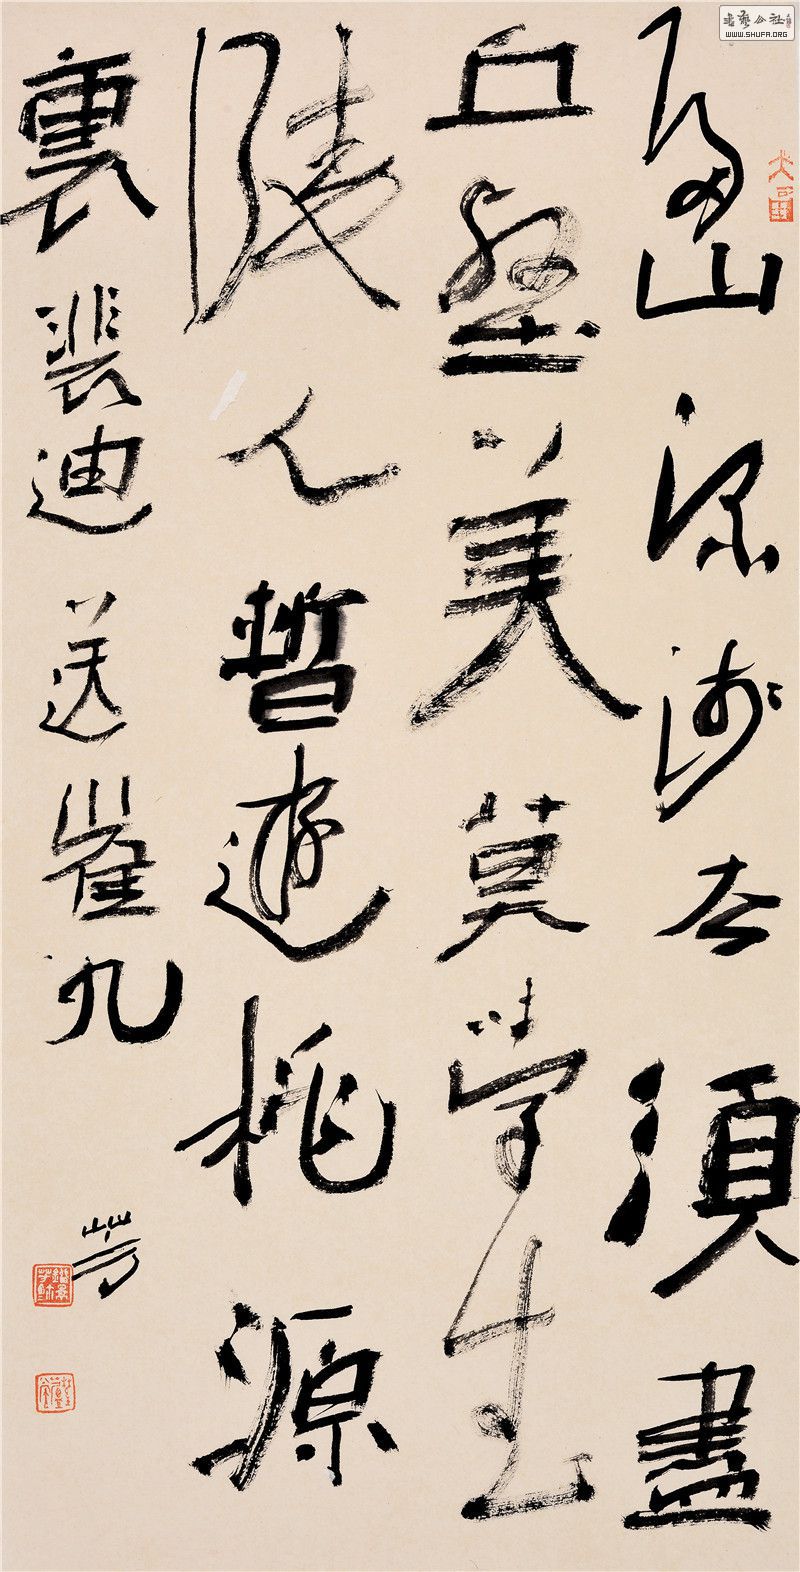 歸山深淺去須盡
丘壑美莫學武
陵人暫遊桃源
裏 裴迪 送崔九 芳
書藝公社
WWW.SHUFA.ORG